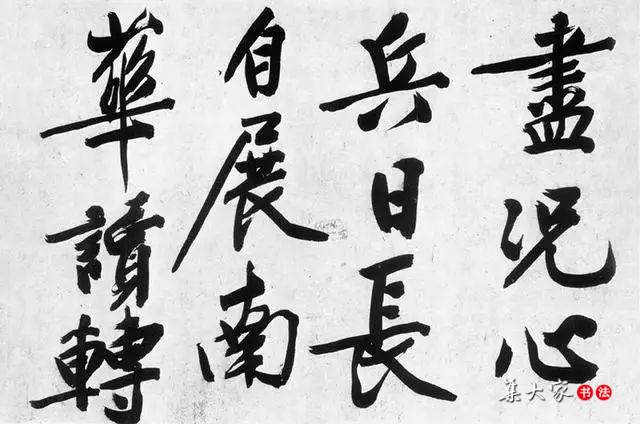 盡況心
兵日長
自展南
華讀轉
集大家书法